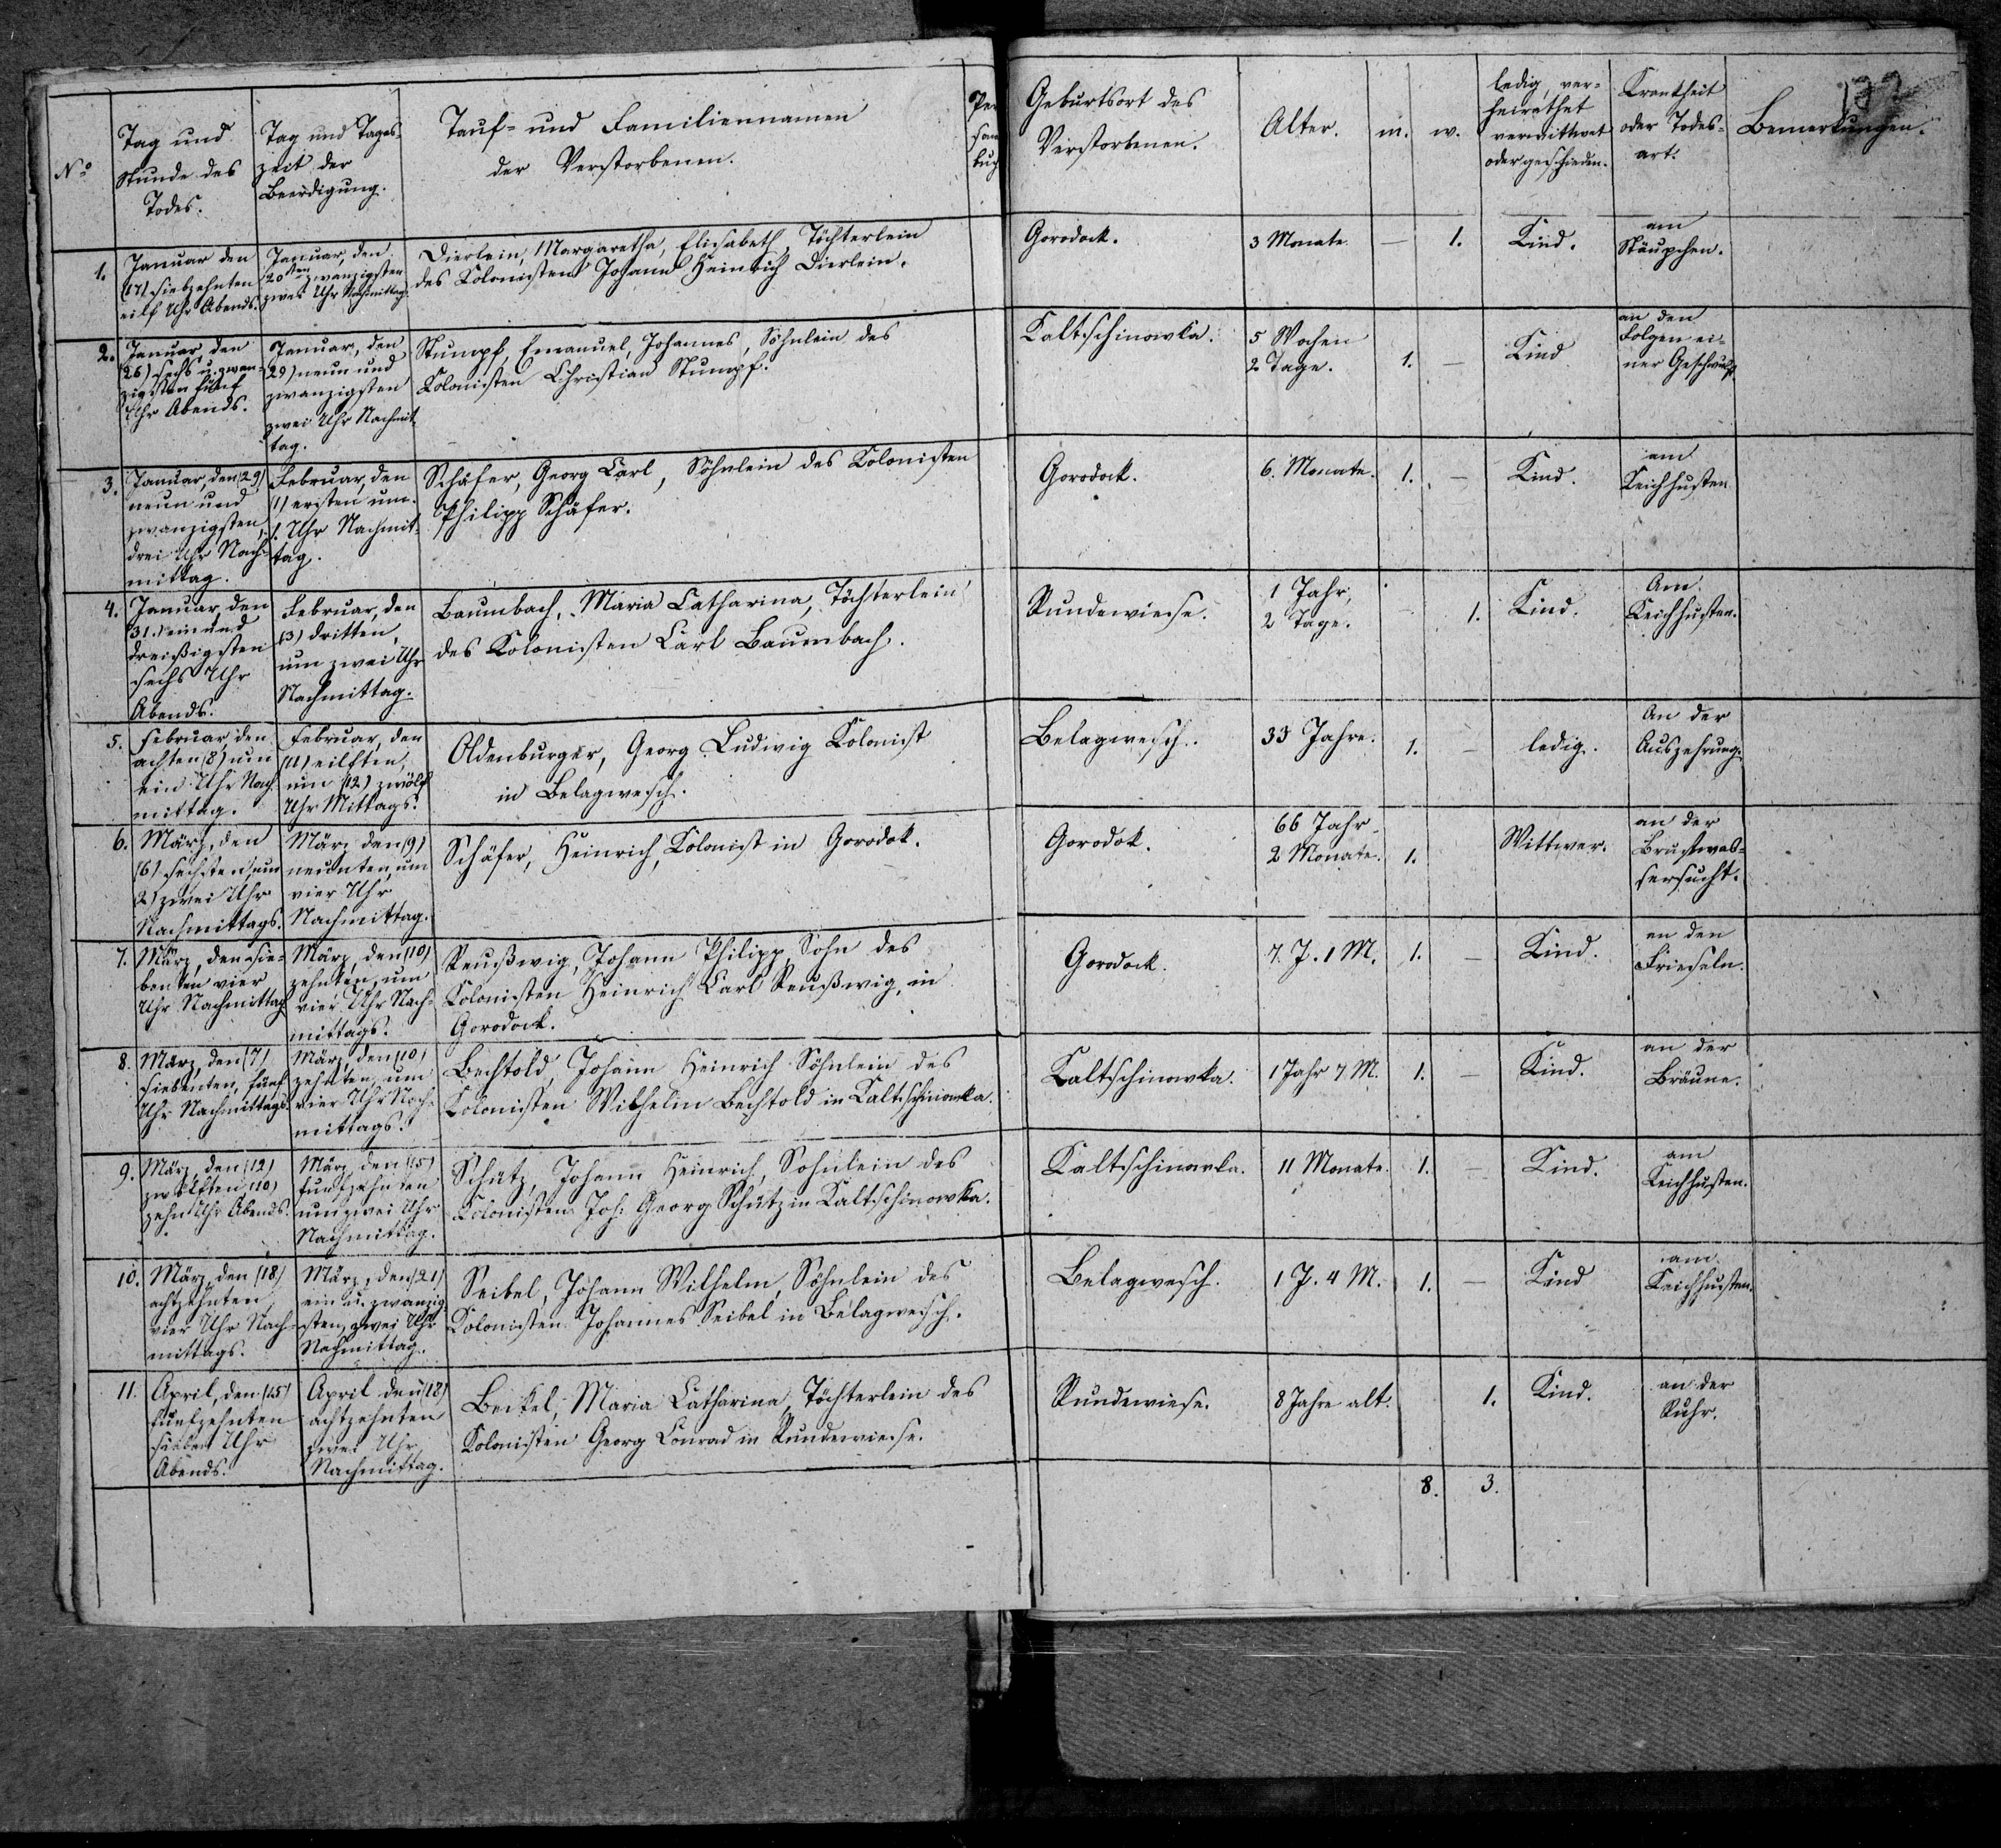 No
Tag und
Stunde des
Todes.
Tag und Tages-
zeit der
Beerdigung.
Tauf- und Familiennamen
der Verstorbenen.
Per
son
buch
Geburtsort des
Verstorbenen.
Alter.
m.
w.
ledig, ver-
heirathet
verwittwet
oder geschieden.
Krankheit
oder Todes-
art.
Bemerkungen.
1.
Januar den
(17) siebzehnten
eilf Uhr Abends.
Januar, den
20ten zwanzigsten
zwei Uhr Nachmittag.
Dierlein, Margaretha, Elisabeth, Töchterlein
des Kolonisten Johann Heinrich Dierlein.
Gorodock.
3 Monate
—
1.
Kind.
am
Stäupchen.
2.
Januar, den
(26) sechs u. zwan-
zigsten fünf
Uhr Abends.
Januar, den
29) neun und
zwanzigsten
zwei Uhr Nachmit-
tag.
Stumpf, Emanuel, Johannes, Söhnlein des
Kolonisten Christian Stumpf.
Kaltschinowka.
5 Wochen
2 Tage.
1.
—
Kind
an den
Folgen ei-
ner Geschwulst
3.
Januar, den (29)
neun und
zwanzigsten,
drei Uhr Nach-
mittag.
Februar, den
(1) ersten um
1. Uhr Nachmit-
tag.
Schäfer, Georg Carl, Söhnlein des Kolonisten
Philipp Schäfer.
Gorodock.
6. Monate.
1.
—
Kind.
am
Keichhusten
4.
Januar, den
(31.) ein und
dreißigsten
sechs Uhr
Abends.
Februar, den
(3) dritten,
um zwei Uhr
Nachmittag.
Baumbach, Maria Catharina, Töchterlein
des Kolonisten Carl Baumbach.
Rundewiese.
1 Jahr,
2 Tage.
1.
Kind.
Am
Keichhusten.
5.
Februar, den
achten (8) um
ein Uhr Nach
mittag.
Februar, den
(11) eilften,
um (12) zwölf
Uhr Mittags.
Oldenburger, Georg Ludwig Kolonist
in Belagwesch.
Belagwesch.
33 Jahre.
1.
—
ledig.
An der
Auszehrung.
6.
März, den
(6) sechsten, um
2) zwei Uhr
Nachmittags.
März den (9)
neunten, um
vier Uhr
Nachmittag.
Schäfer, Heinrich, Kolonist in Gorodok.
Gorodok.
66 Jahr
2 Monate.
1.
Wittwer.
an der
Brustwas-
sersucht.
7.
März, den sie-
benten vier
Uhr Nachmittag
März, den (10)
zehnten, um
vier Uhr Nach-
mittags.
Reußwig, Johann Philipp, Sohn des
Kolonisten Heinrich Carl Reußwig, in
Gorodock.
Gorodock.
7. J. 1 M.
1.
—
Kind.
an den
Frieseln.
8.
März, den (7)
siebenten, fünf
Uhr Nachmittags.
März, den (10)
zehnten, um
vier Uhr Nach-
mittags.
Bechtold, Johann Heinrich Söhnlein des
Kolonisten Wilhelm Bechtold in Kaltschinowka.
Kaltschinowka.
1 Jahr 7 M.
1.
—
Kind.
an der
Bräune.
9.
März, den (12)
zwölften (10)
zehn Uhr Abends.
März, den (15)
fünfzehnten
um zwei Uhr
Nachmittag.
Schütz, Johann Heinrich, Söhnlein des
Kolonisten Joh: Georg Schütz in Kaltschinowka.
Kaltschinowka.
11 Monate.
1.
—
Kind.
am
Keichhusten.
10.
März, den (18)
achtzehnten
vier Uhr Nach-
mittags.
März, den (21)
ein u. zwanzig-
sten, zwei Uhr
Nachmittag.
Seibel, Johann Wilhelm, Söhnlein des
Kolonisten Johannes Seibel in Belagwesch.
Belagwesch.
1 J. 4 M.
1.
—
Kind
am
Keichhusten.
11.
April, den (15)
fünfzehnten
sieben Uhr
Abends.
April den (18)
achtzehnten
zwei Uhr
Nachmittag.
Beikel, Maria Catharina, Töchterlein des
Kolonisten Georg Conrad in Rundewiese.
Rundewiese.
8 Jahre alt.
1.
Kind.
an der
Ruhr.
8.
3.